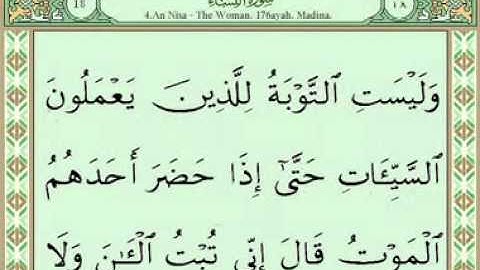 18 سورة النساء ١٨
4.An Nisa - The Woman. 176ayah. Madina.
وَلَيْسَتِ ٱلتَّوْبَةُ لِلَّذِينَ يَعْمَلُونَ
ٱلسَّيِّـَٔاتِ حَتَّىٰٓ إِذَا حَضَرَ أَحَدَهُمُ
ٱلْمَوْتُ قَالَ إِنِّى تُبْتُ ٱلْـَٰٔنَ وَلَا